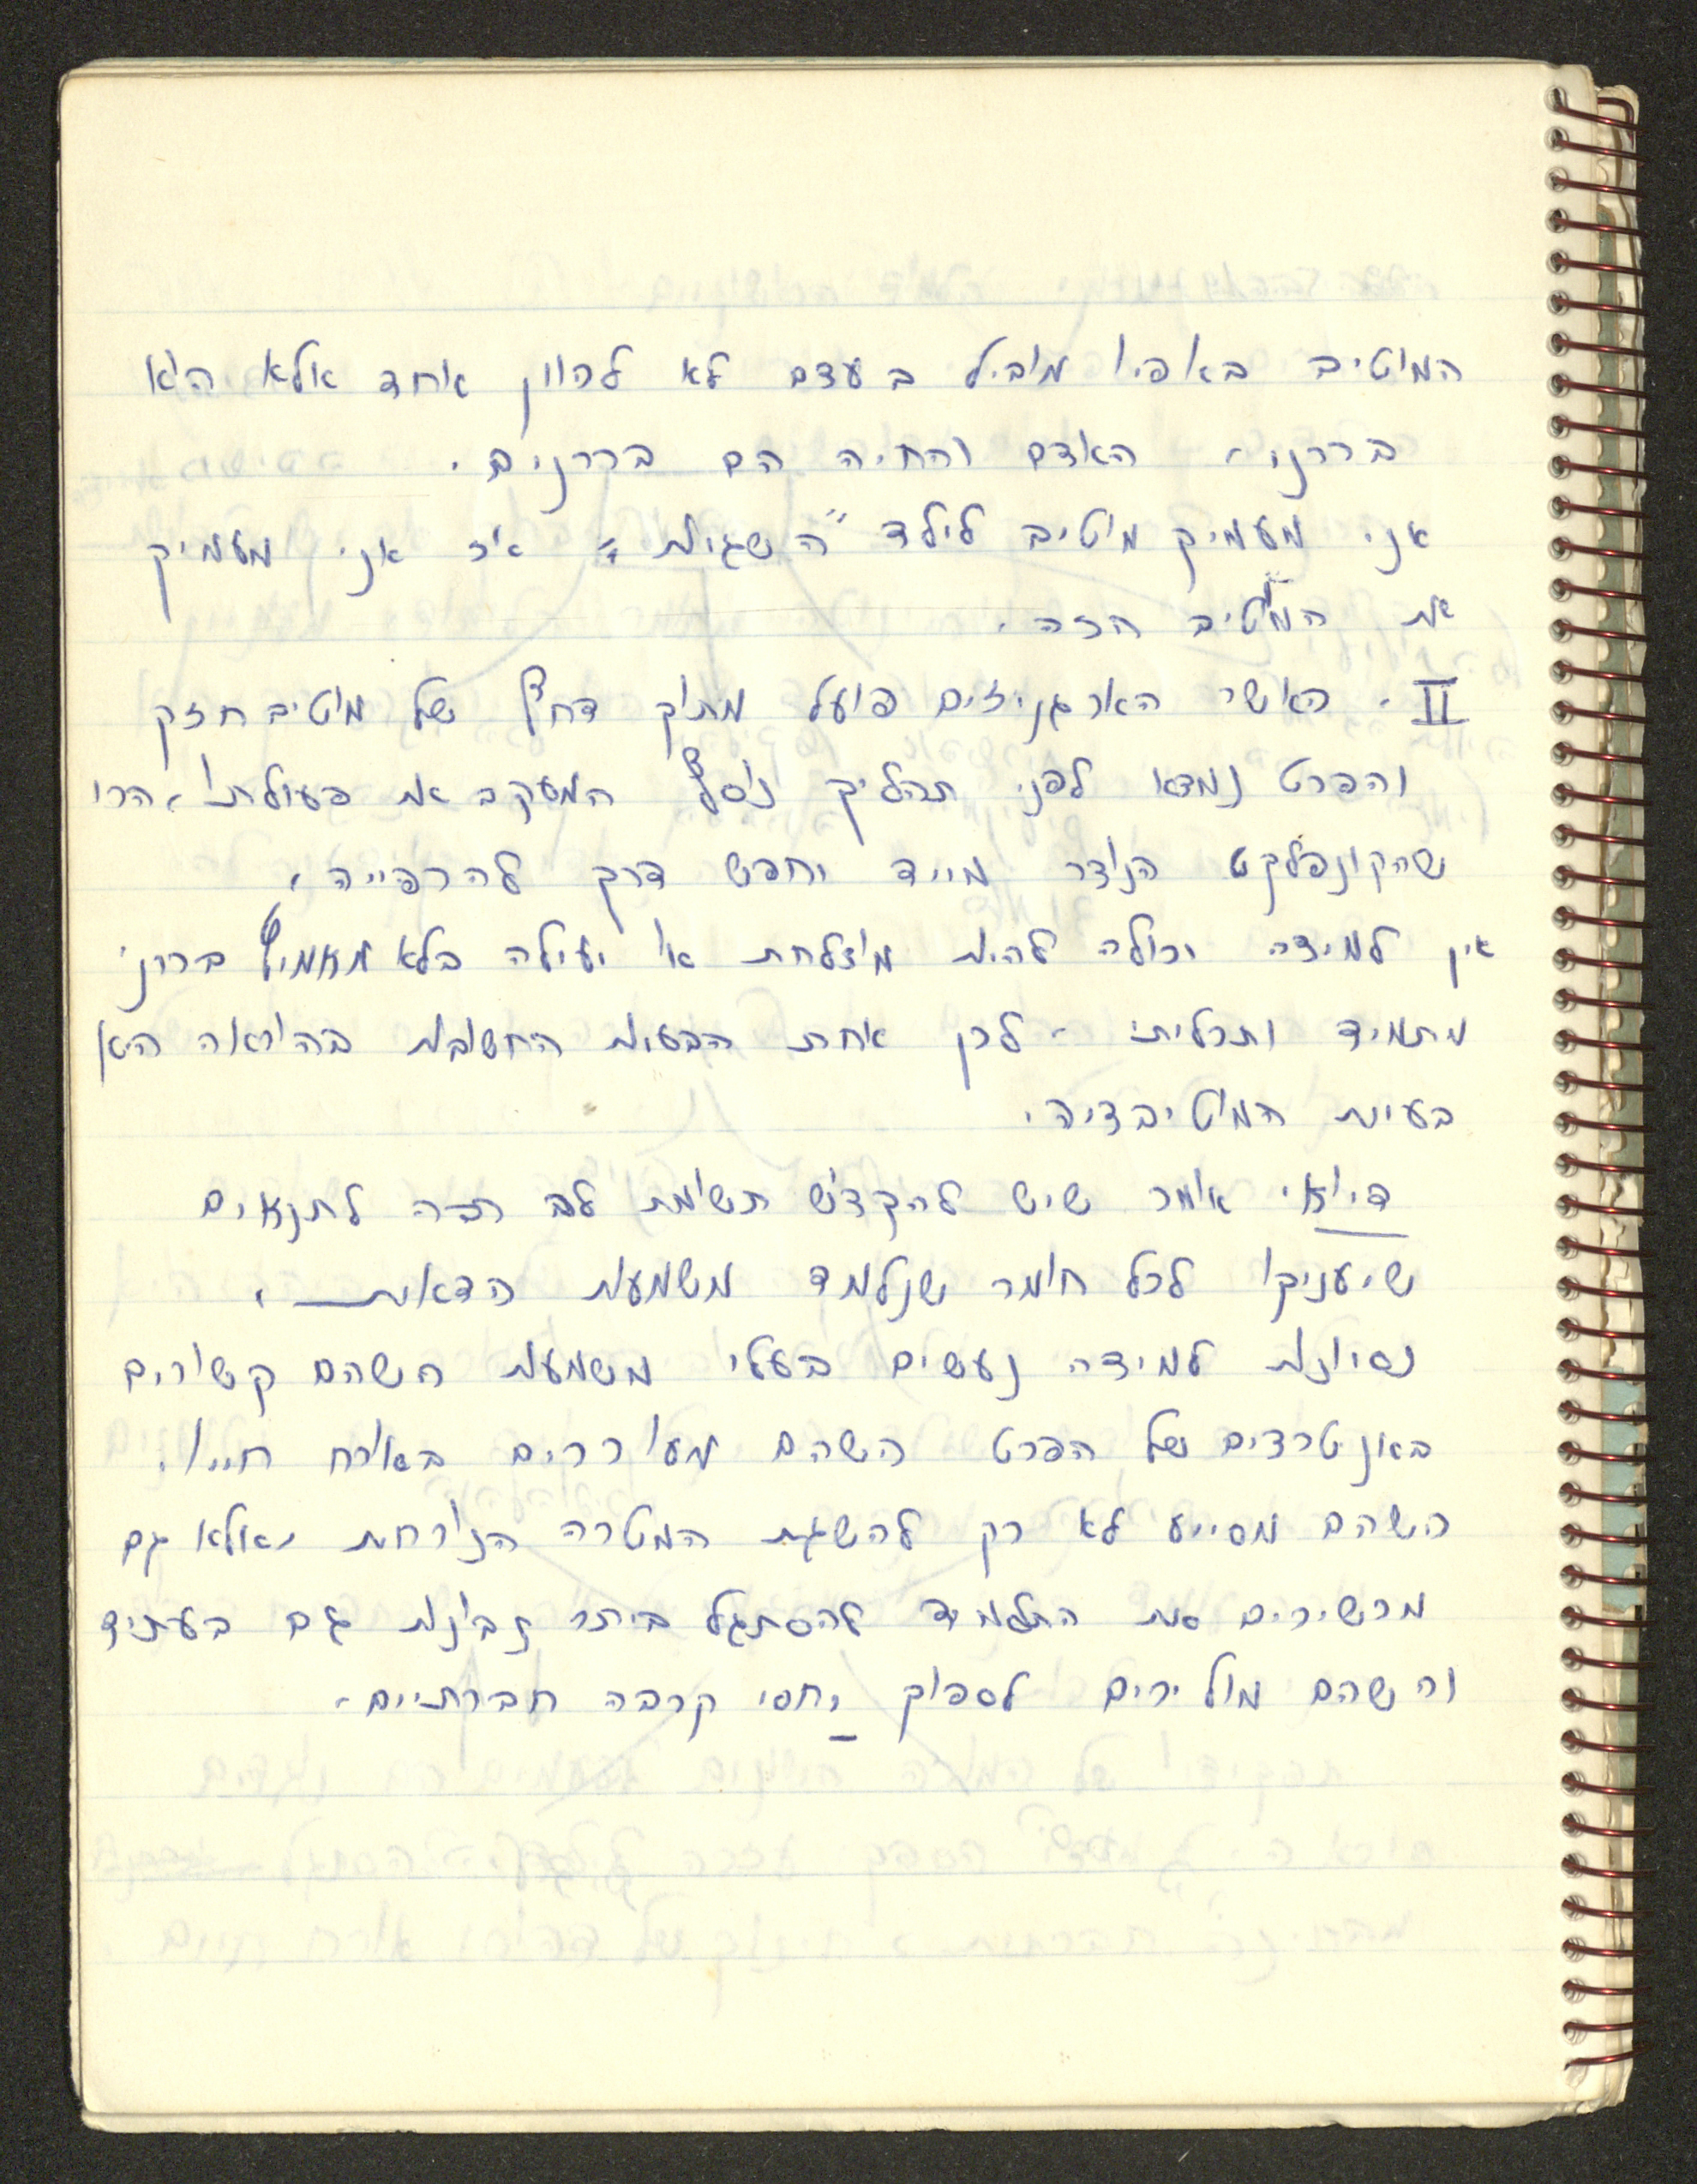 המוטיב באופיו מוביל בעצם לא לכוון אחד אלא הוא
בררני. האדם והחיה הם בררנים.
אני מעמיק מוטיב לילד "השגיות" אז אני מעמיק
את המוטיב הזה.
II. כאשר האורגניזים פועל מתוך דחף של מוטיב חזק
והפרט נמצא לפני תהליך נוסף המעקב את פעולתו, הרי
שהקונפלקט הנוצר מייד יחפש דרך להרפייה.
אין למידה יכולה להיות מוצלחת או יעילה בלא מאמץ ברוני
מתמיד ותכליתי. לכן אחת הבעיות החשובות בהוראה היא
בעית המוטיבציה.
דיואי אומר שיש להקדיש תשומת לב רבה לתנאים
שיעניקו לכל חומר שנלמד משמעות הדאות.
נסיונות למידה נעשים בעלי משמעות כשהם קשורים
באנטרצים של הפרט כשהם מעוררים באורח חייו.
כשהם מסייע לא רק להשגת המטרה הנוכחת, אולא גם
מכשירים את התלמיד להסתגל ביתר נבונות גם בעתיד
וכשהם מולידים לספוק יחסי קרבה חברתיים.